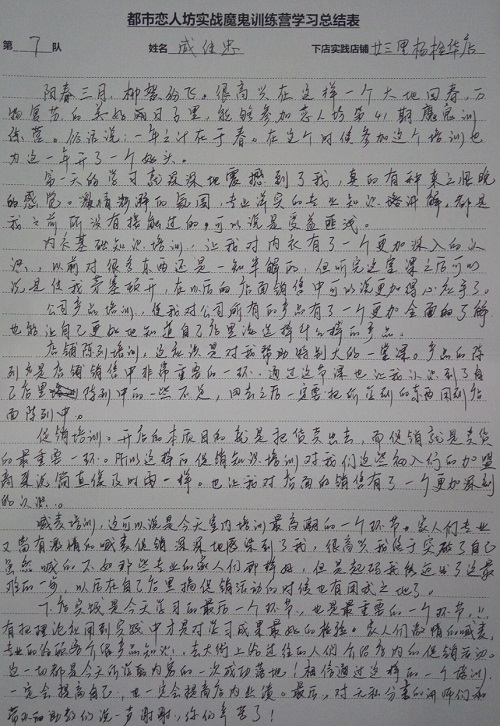 都市恋人坊实战魔鬼训练营学习总结表
第 7 队 姓名 成佳忠 下店实践店铺 廿三里杨桂华店
阳春三月,柳絮纷飞。很高兴在这样一个大地回春,万
物复苏的美好雨日子里,能够参加恋人坊第41期魔鬼训
练营。俗话说,一年之计在于春。在这个时候参加这个培训也
为这一年开了一个好头。
第一天的学习就深深地震撼到了我,真的有种来之恨晚
的感觉。激情澎湃的氛围,专业详实的专业知识培讲解,都是
我之前所没有接触过的。可以说是受益匪浅。
内衣基础知识培训,让我对内衣有了一个更加深入的认
识,以前对很多东西还是一知半解的,但听完这堂课之后可以
说是使我茅塞顿开,在以后的店面销售中可以说更加得心应手了。
公司产品培训,使我对公司所有的产品有了一个更加全面的了解
也能让自己更好地知道自己店里该选择什么样的产品。
店铺陈列培训,这应该是对我帮助特别大的一堂课。产品的陈
列也是店铺销售中非常重要的一环。通过这节课也让我认识到了自
己店里陈列中的一些不足,回去之后一定要把所学到的东西用到店
面陈列中。
促销培训。开店的本质目的就是把货卖出去,而促销就是卖货
的最重要一环。所以这样的促销知识培训对我们这些初入行的加盟
商来说简直像及时雨一样。也让我对店面的销售有了一个更加深刻
的认识。
喊麦培训,这可以说是今天室内培训最高潮的一个环节。家人们专业
又富有激情的喊麦促销深深地感染到了我,很高兴我终于突破了自己
虽然喊的不如那些专业的家人们那样好,但是起码我能迈出了这最
难的一步,以后在自己店里搞促销活动的时候也有用武之地了。
下店实践是今天学习的最后一个环节,也是最重要的一个环节,只
有把理论运用到实践中才是对学习成果最好的检验。家人们激情的喊麦,
专业的给顾客介绍产品知识,去大街上给过往的人们介绍店内的促销活动。
这一切都是今天所学内容的一次成功落地!相信通过这样的一个培训
一定会提高自己,也一定会提高店内业绩。最后,对无私分享的讲师们和
背后的助教们说一声谢谢,你们辛苦了!